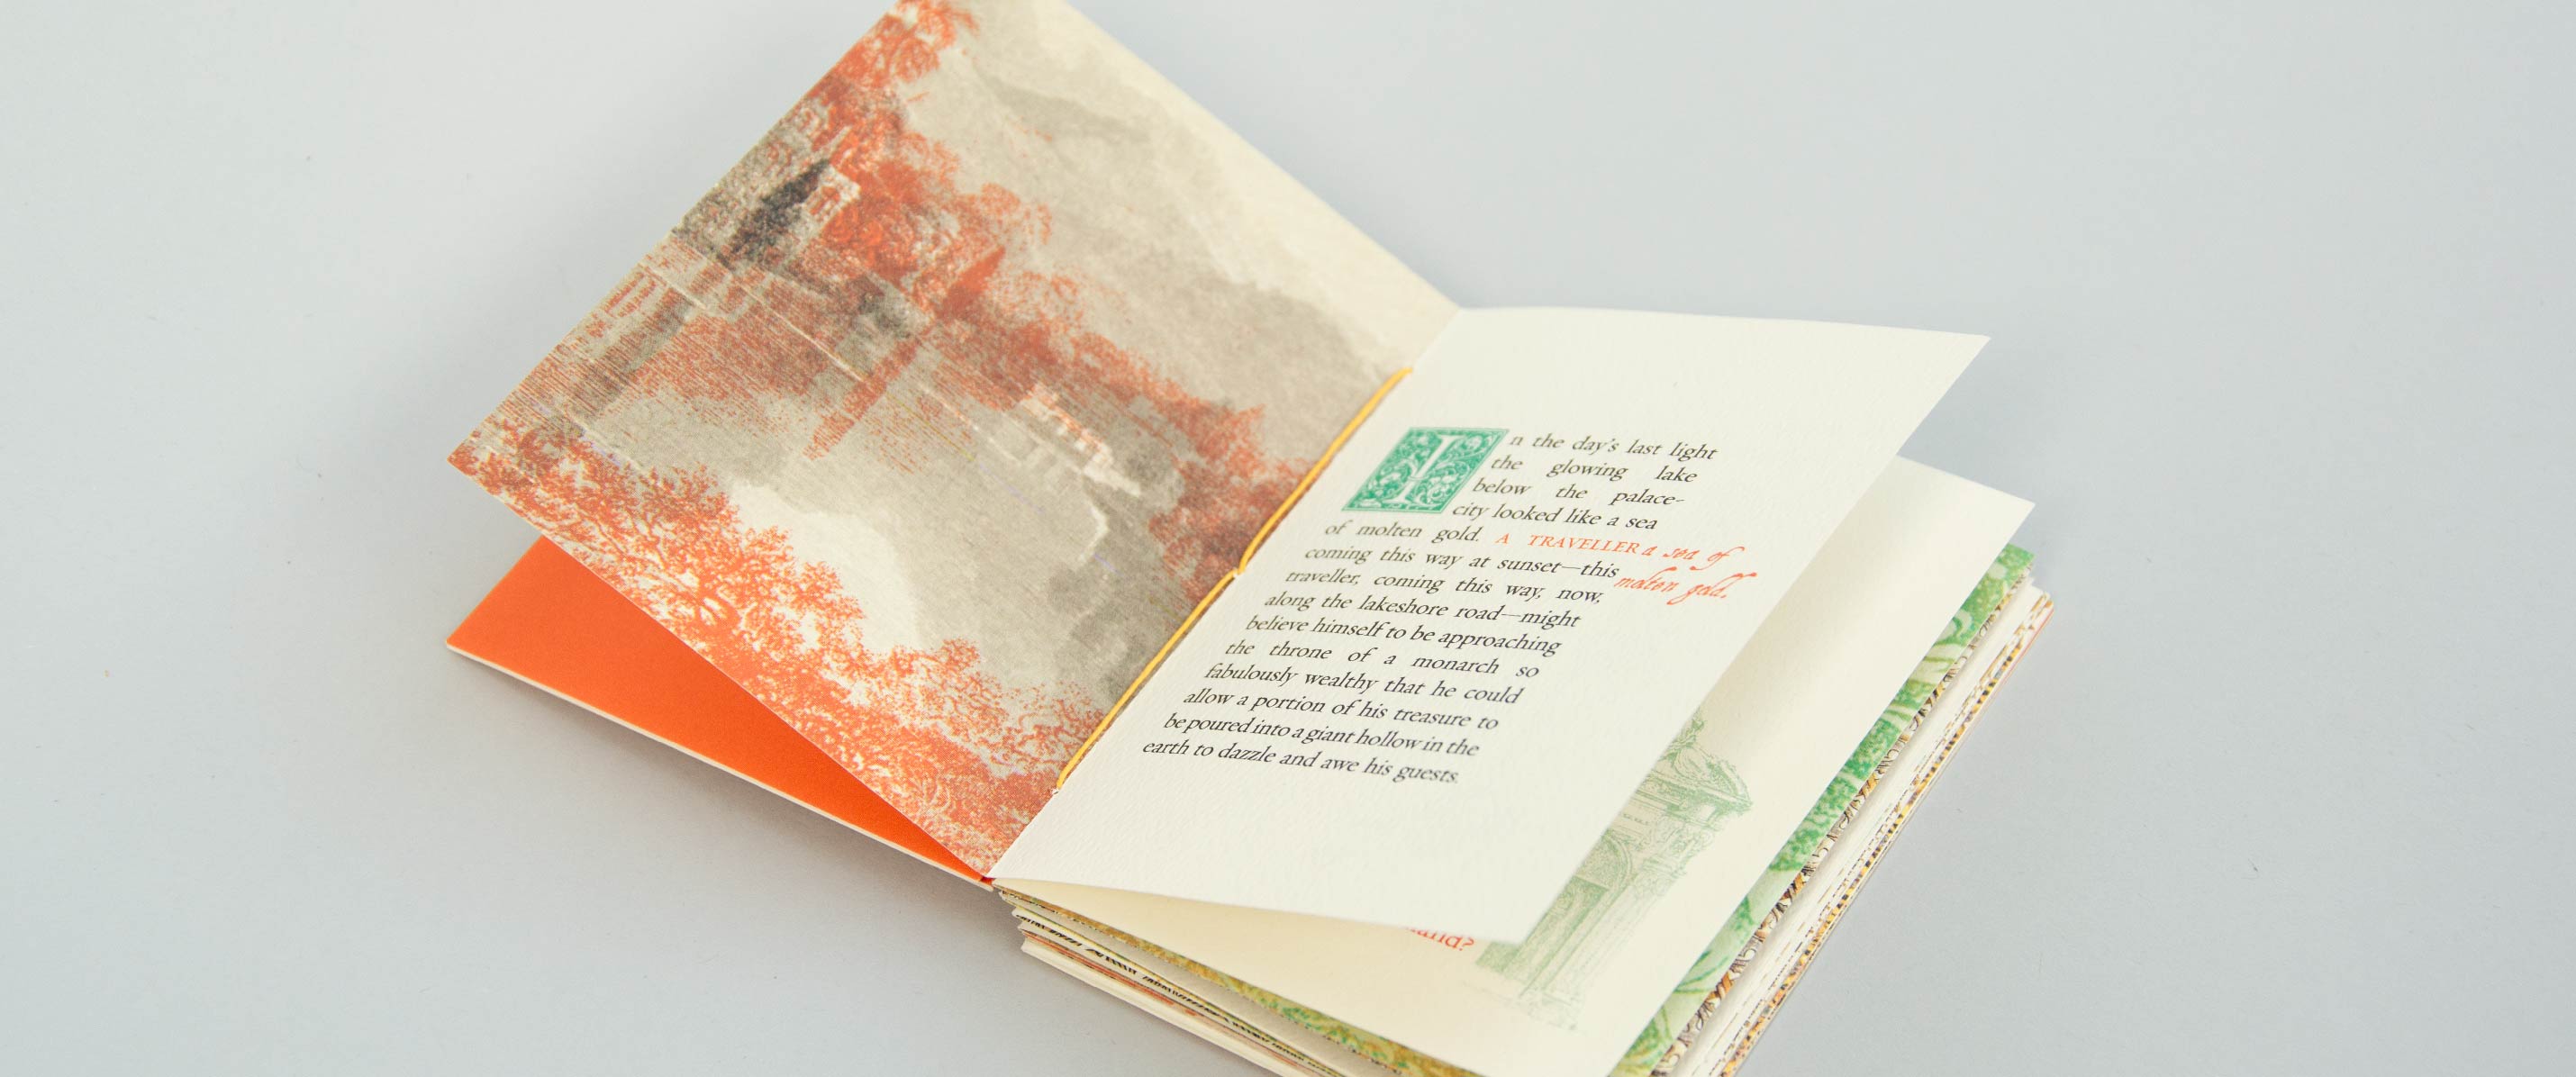 In the day's last light
the glowing lake
below the palace-
city looked like a sea
of molten gold. A TRAVELLER
coming this way at sunset—this
traveller, coming this way, now,
along the lakeshore road—might
believe himself to be approaching
the throne of a monarch so
fabulously wealthy that he could
allow a portion of his treasure to
be poured into a giant hollow in the
earth to dazzle and awe his guests.
a sea of
molten gold.